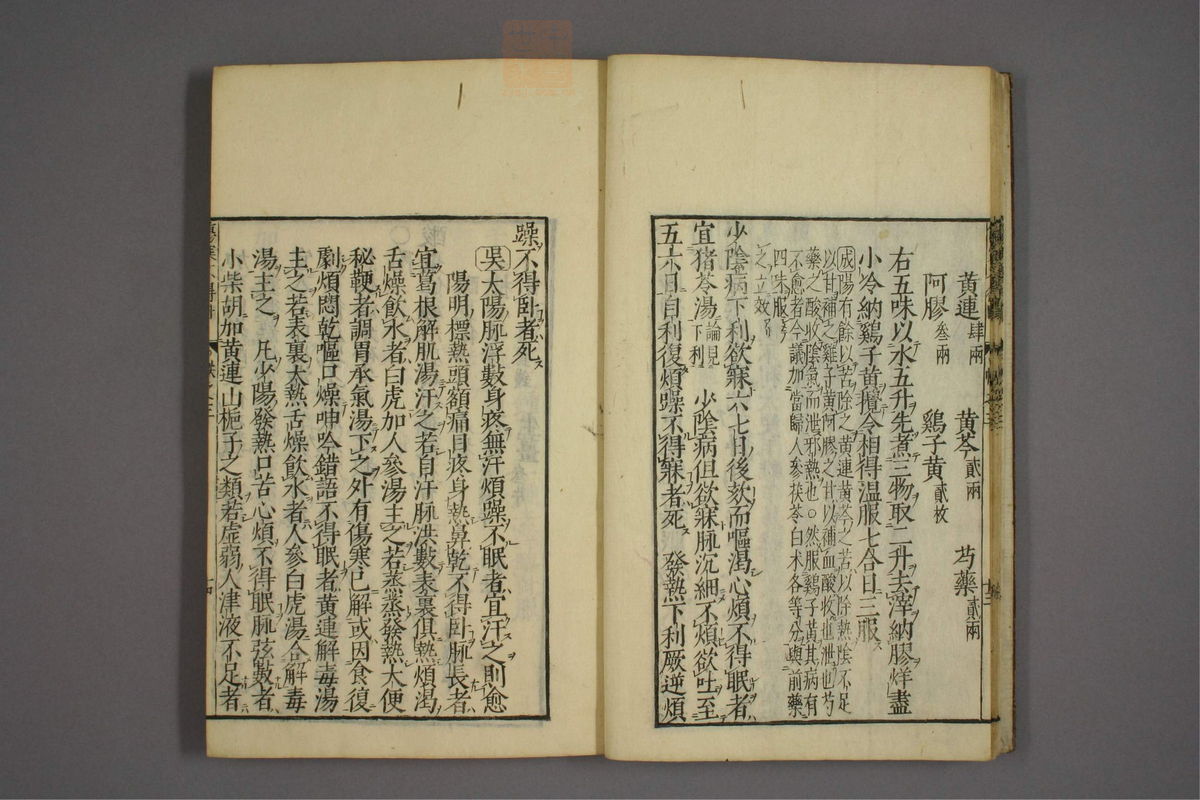 黄連肆兩 黄芩貳兩 芍藥貳兩
阿膠叁兩 鷄子黄貳枚
右五味以水五升先煮三物取二升去滓納膠烊盡
小冷納鷄子黄攪令相得温服七合日三服
成陽有餘以苦除之黄連黄芩之苦以除熱陰不足
以甘補之雞子黄阿膠之甘以補血酸收也泄也芍
藥之酸收陰氣而泄邪熱也○然服鷄子黄其病有
不愈者今議加當歸人參茯苓白术各等分與前藥
四味服
之立效
少陰病下利欬寐六七日後欬而嘔渴心煩不得眠者
宜猪苓湯論見下利 少陰病但欲寐脉沉細不煩欲吐至
五六日自利復煩躁不得寐者死 發熱下利厥逆煩
躁不得卧者死
吳太陽脉浮數身疼無汗煩躁不眠者宜汗之則愈
陽明標熱頭額痛目疼身熱鼻乾不得卧脉長者
宜葛根解肌湯汗之若自汗脉洪數表裏俱熱煩渴
舌燥飲水者白虎加人參湯主之若蒸蒸發熱大便
秘鞕者調胃承氣湯下之外有傷寒已解或因食復
劇煩悶乾嘔口燥呻吟錯語不得眠者黄連解毒湯
主之若表裏大熱舌燥飲水者人參白虎湯合解毒
湯主之 凡少陽發熱口苦心煩不得眠脉弦數者
小柴胡加黄連山梔子之類若虚弱人津液不足者